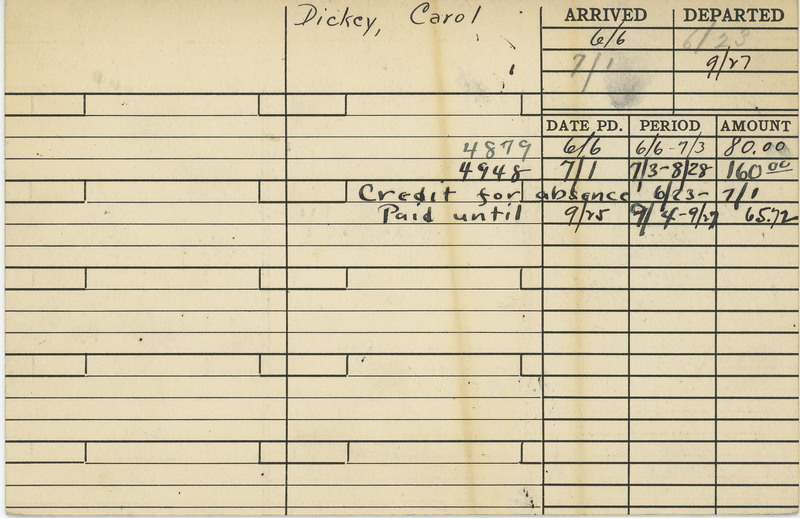 Dickey, Carol ARRIVED DEPARTED
6/6 6/23
7/1 9/27
DATE PD. PERIOD AMOUNT
4879 6/6 6/6-7/3 80.00
4948 7/1 7/3-8/28 160 00
Credit for absence 6/23- 7/1
Paid until 9/25 9/4-9/27 65.72